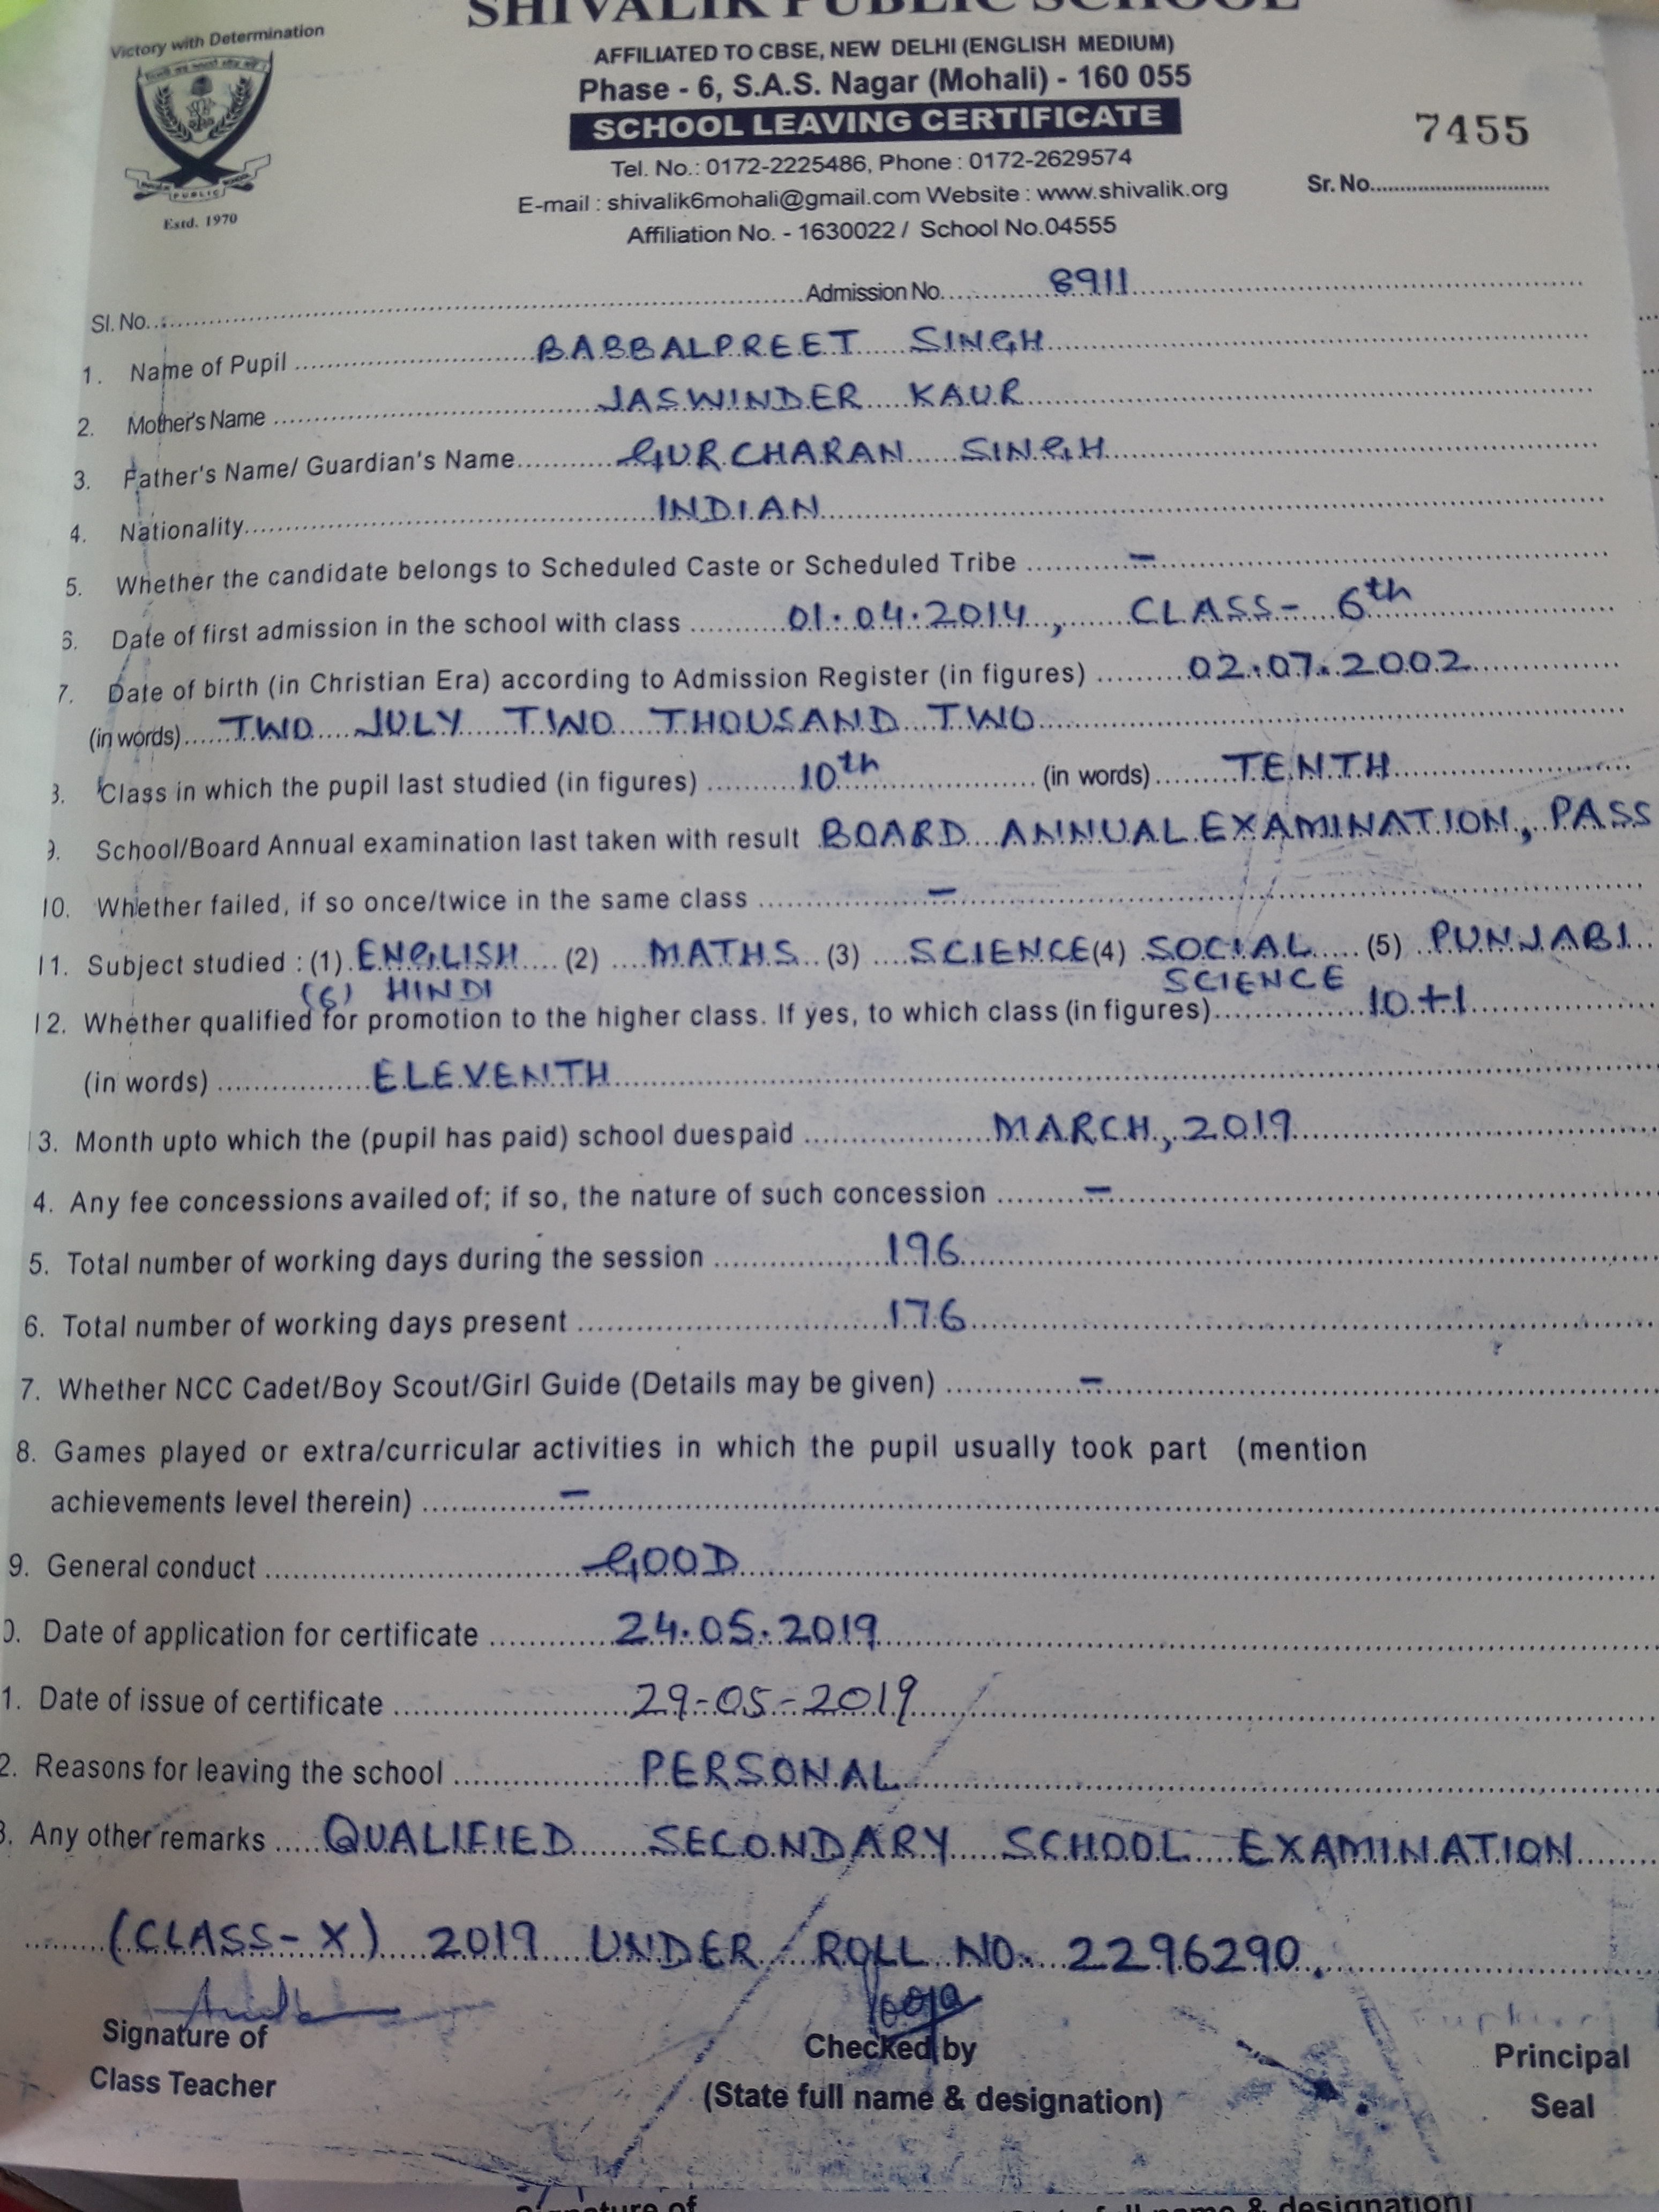 SHIVALIK PUBLIC SCHOOL
Victory with Determination
AFFILIATED TO CBSE, NEW DELHI (ENGLISH MEDIUM)
Phase - 6, S.A.S. Nagar (Mohali) - 160 055
SCHOOL LEAVING CERTIFICATE
7455
Tel. No.: 0172-2225486, Phone : 0172-2629574
E-mail : shivalik6mohali@gmail.com Website : www.shivalik.org
Sr. No.
PUBLIC SCHOOL
Estd. 1970
Affiliation No. - 1630022 / School No.04555
Sl. No. Admission No. 8911
1. Name of Pupil BABBALPREET SINGH
2. Mother's Name JASWINDER KAUR
3. Father's Name/ Guardian's Name GURCHARAN SINGH
4. Nationality INDIAN
5. Whether the candidate belongs to Scheduled Caste or Scheduled Tribe –
6. Date of first admission in the school with class 01.04.2014, CLASS- 6th
7. Date of birth (in Christian Era) according to Admission Register (in figures) 02.07.2002
(in words) TWO JULY TWO THOUSAND TWO
8. Class in which the pupil last studied (in figures) 10th (in words) TENTH
9. School/Board Annual examination last taken with result BOARD ANNUAL EXAMINATION, PASS
10. Whether failed, if so once/twice in the same class –
11. Subject studied : (1) ENGLISH (2) MATHS (3) SCIENCE (4) SOCIAL (5) PUNJABI
(6) HINDI SCIENCE
12. Whether qualified for promotion to the higher class. If yes, to which class (in figures) 10+1
(in words) ELEVENTH
13. Month upto which the (pupil has paid) school duespaid MARCH, 2019
4. Any fee concessions availed of; if so, the nature of such concession –
5. Total number of working days during the session 196
6. Total number of working days present 176
7. Whether NCC Cadet/Boy Scout/Girl Guide (Details may be given) –
8. Games played or extra/curricular activities in which the pupil usually took part (mention
achievements level therein) –
9. General conduct GOOD
0. Date of application for certificate 24.05.2019
1. Date of issue of certificate 29-05-2019
2. Reasons for leaving the school PERSONAL
3. Any other remarks QUALIFIED SECONDARY SCHOOL EXAMINATION
(CLASS-X) 2019 UNDER ROLL NO. 2296290.
Signature of Checked by Principal
Class Teacher (State full name & designation) Seal
Signature of full name & designation)